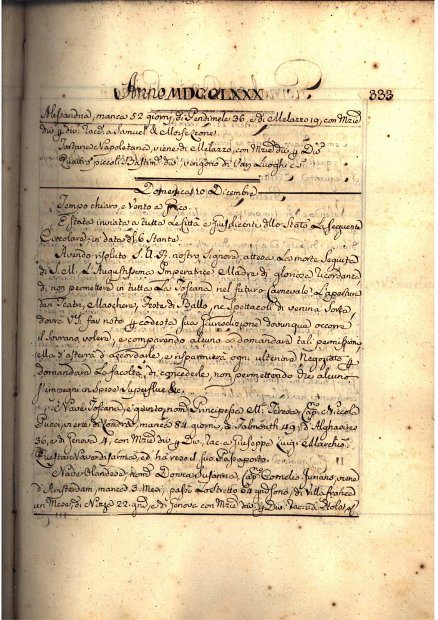 Anno MDCCLXXX. 333
Alessandria, manca 52 giorni, di 36, e di Melazzo 19, con Mzie
div. p. div. Racd. a Samuel & Moise Leone.
Tartana Napoletana, viene di Melazzo, con Mzie div. p. Di.
Quattro piccoli Bastim. div. vengono di Vari Luoghi &c.
Domenica 10 Dicembre
Tempo chiaro, e Vento a Greco.
È stata inviata a tutte le Città e Giusdicenti dello Stato la seguente
Circolare, in data di 6 Stante.
Avendo risoluto S. A. R. nostro Signore, attesa la morte seguita
di S. M. L'Augustissima Imperatrice Madre di gloriosa Ricordanza
di non permettere in tutta la Toscana nel futuro Carnevale L'apertura
dei Teatri, Maschere, Feste di Ballo, ne Spettacoli di veruna Sorte,
dovrà VS. far noto p. codesta sua Giurisdizione dovunque occorre
il Sovrano volere, e comparendo alcuno a domandare tali permissioni,
ella d'asterrà d'accordarle, e risparmierà ogni ulteriore p.
domandare la facoltà, di concederle, non permettendo che alcuno
s'impegni in spese superflue &c.
Nave Toscana, è giunta, nom. Principessa M. Teresa, Cap. Niccola
Pucci, viene di Londra, manca 84 giorni, di Falmouth 49, d'Alghaires
36, e di Genova 4, con Mzie div. p. Div. rac. a Giuseppe Luigi
Questa Nave disarma, ed ha reso il suo Passaporto.
Nave Olandese, nom. Donna Susanna, Cap. Cornelio viene
d'Amsterdam, manca 3 Mesi, passò lo Stretto 64 gni. sono, di Villafranca
un Mese, di Nizza 22 gni. e di Genova con Mzie div. p. Div. rac. a